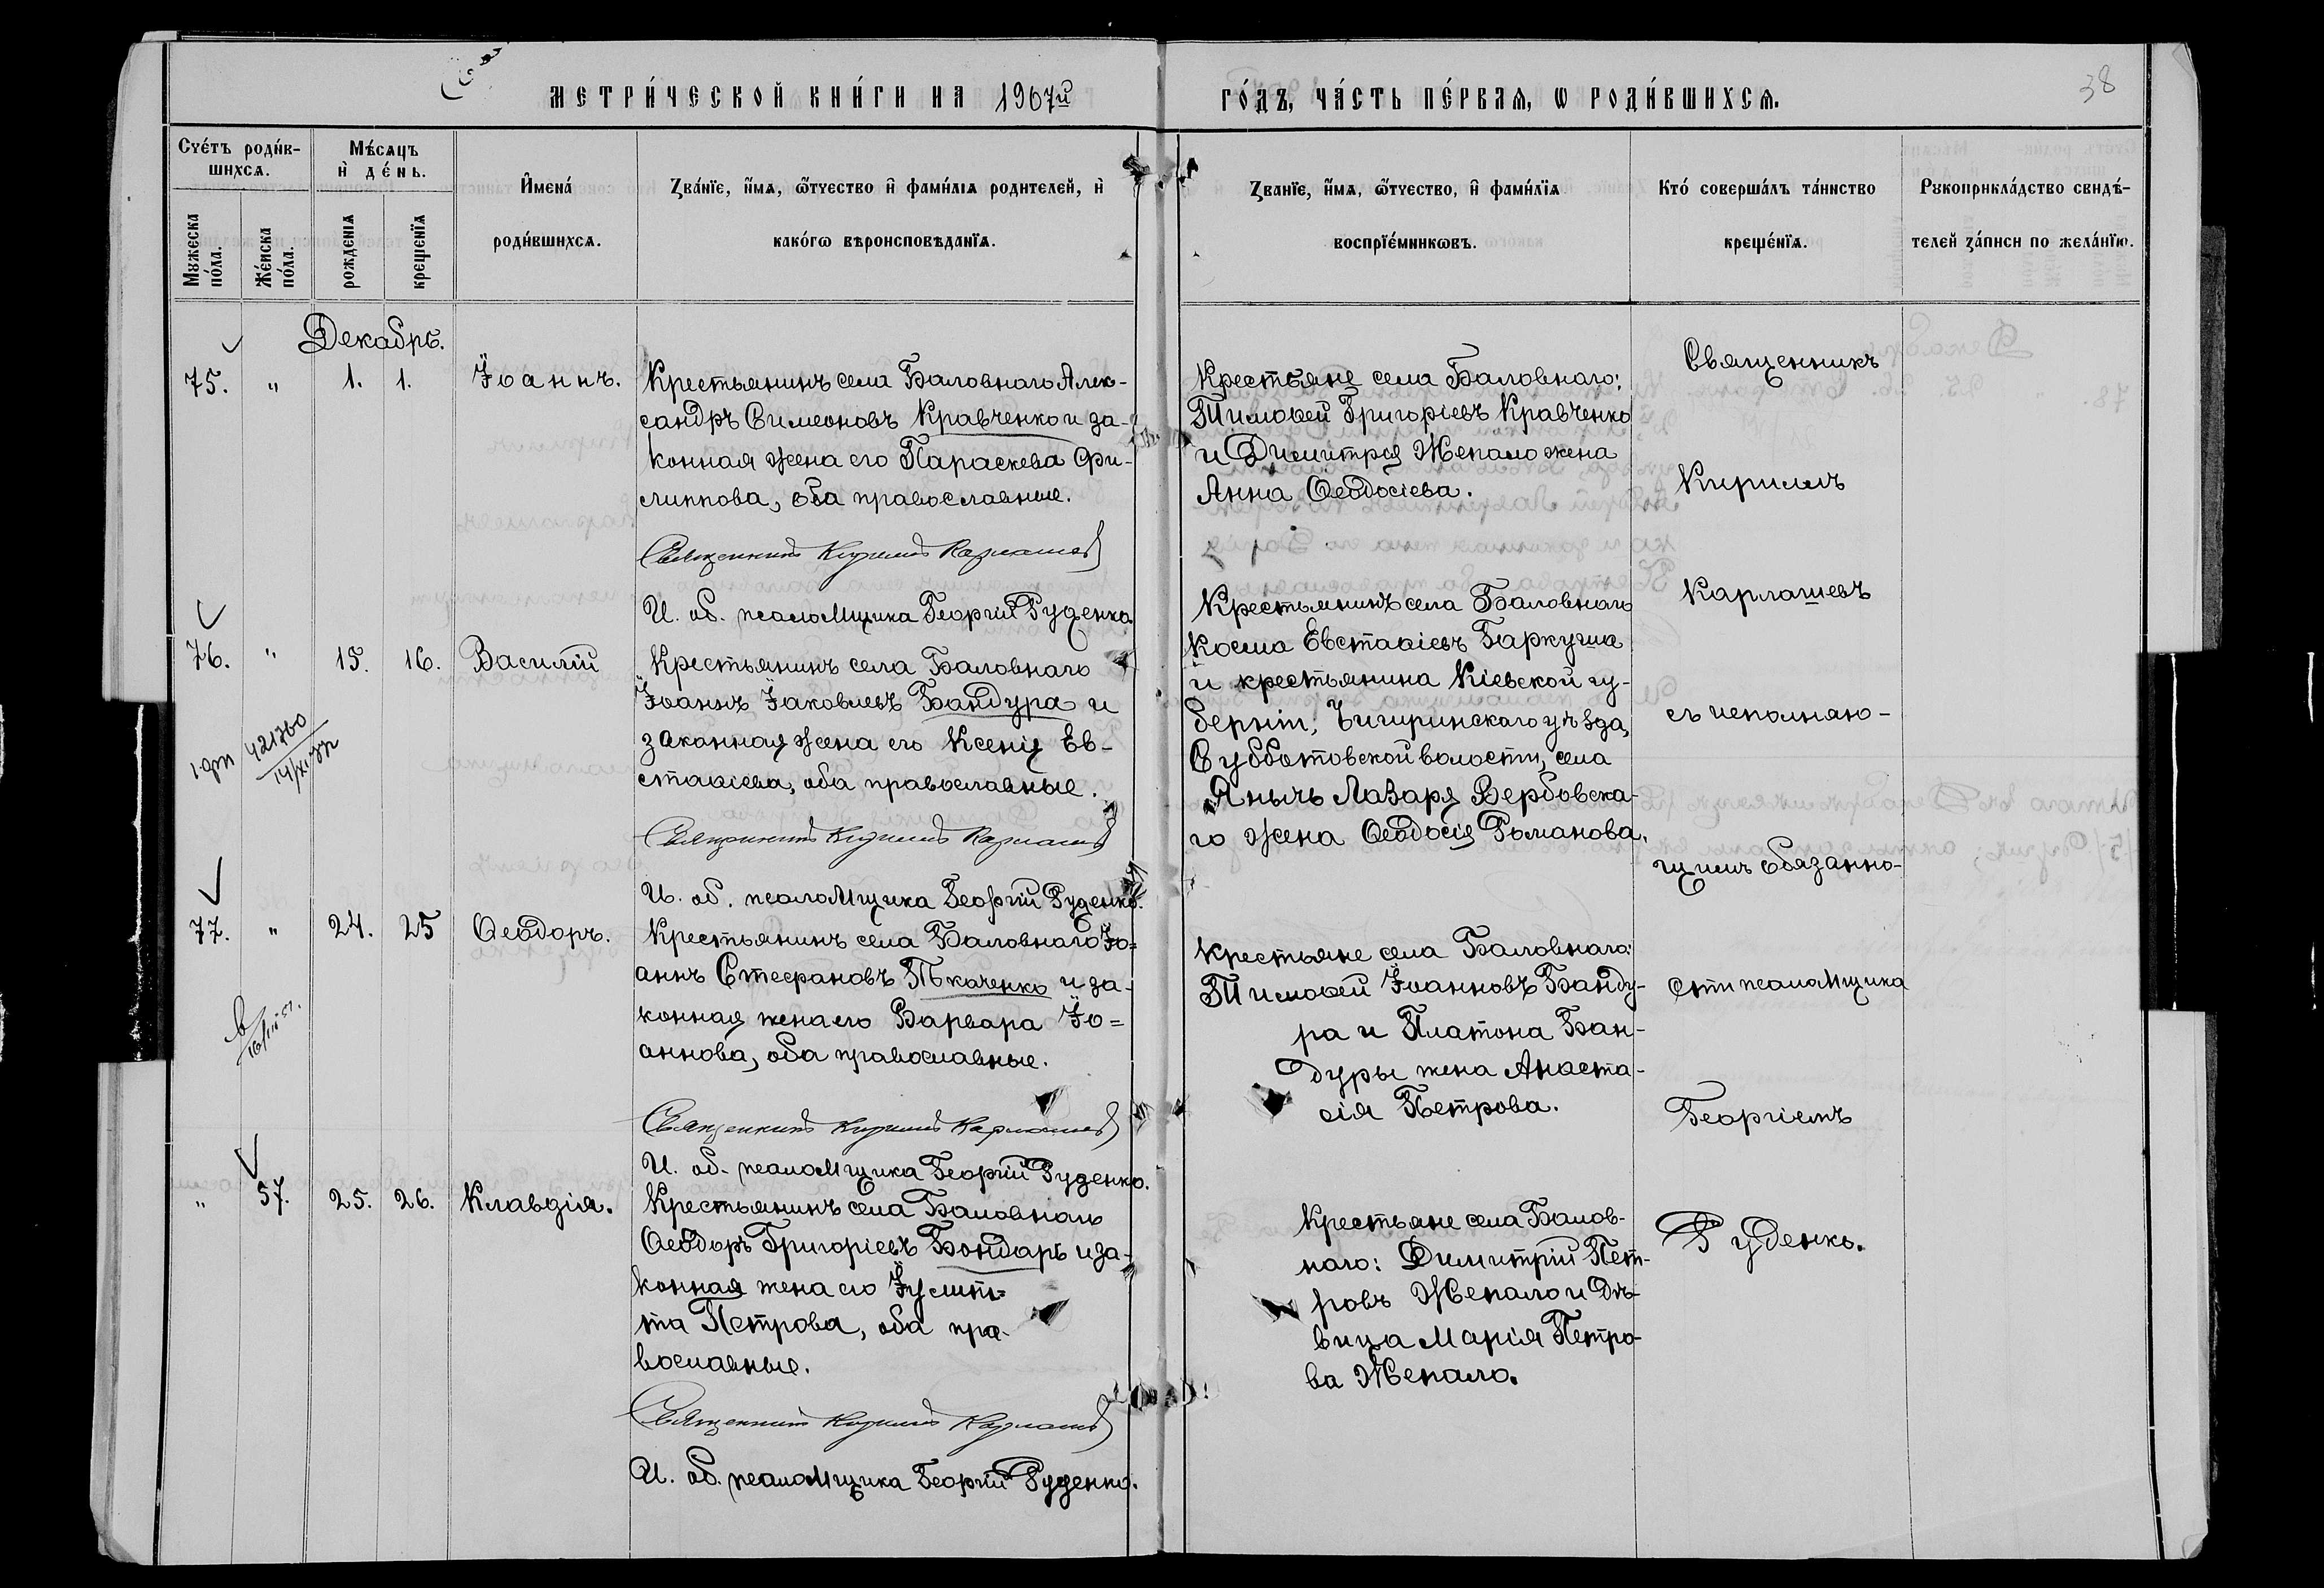 МЕТРИ́ЧЕСКОЙ КНИ́ГИ НА 1907й
ГО́ДЪ, ЧА́СТЬ ПЕ́РВАЯ, Ѡ РОДИ́ВШИХСЯ.
38
Сче́тъ роди́в-
шихся.
Мꙋжеска
по́ла.
Же́нска
по́ла.
Мѣ́сяцъ
и҆ де́нь.
рожденїя
крещенїя
И҆мена́
роди́вшихся.
Зва́нїе, и҆́мя, ѻ҆́тчество и҆ фами́лїя родителей, и҆
како́гѡ вѣроисповѣданїя.
Званїе, и҆́мя, ѻ҆́тчество, и҆ фами́лїя
воспрїе́мникѡвъ.
Кто́ соверша́лъ та́инство
креще́нїя.
Рꙋкоприкла́дство свидѣ́-
телей за́писи по жела́нїю.
Декабрь.
75. " 1. 1. Іоаннъ.
Крестьянинъ села Баловнаго Алек-
сандръ Симеоновъ Кравченко и за-
конная жена его Параскева Фи-
липпова, оба православные.
Священникъ Кириллъ Карлашев
И. об. псаломщика Георгій Руденко
Крестьяне села Баловнаго:
Тимоѳей Григоріевъ Кравченко
и Димитрія Жепало жена
Анна Ѳеодосіева.
76. " 15. 16. Василій
14/XI
Крестьянинъ села Баловнаго
Іоаннъ Іаковлевъ Бандура и
законная жена его Ксенія Ев-
стаѳіева, оба православные.
Священникъ Кириллъ Карлашев
И. об. псаломщика Георгій Руденко.
Крестьянинъ села Баловнаго
Косма Евстаѳіевъ Баркуша
и крестьянина Кіевской гу-
берніи, Чигиринскаго уѣзда,
Субботовской волости, села
Янычъ Лазаря Вербовска-
го жена Ѳеодосія Романова.
77. " 24. 25 Ѳеодоръ.
Крестьянинъ села Баловнаго Іо=
аннъ Стефановъ Ткаченко и за-
конная жена его Варвара Іо=
аннова, оба православные.
Священникъ Кириллъ Карлашев
И. об. псаломщика Георгій Руденко.
Крестьяне села Баловнаго:
Тимоѳей Іоанновъ Банду-
ра и Платона Бан-
дуры жена Анаста-
сія Петрова.
" 57. 25. 26. Клавдія.
Крестьянинъ села Баловнаго
Ѳеодоръ Григоріевъ Бондарь и за-
конная жена его Іулит=
та Петрова, оба пра-
вославные.
Священникъ Кириллъ Карлашев
И. об. псаломщика Георгій Руденко.
Крестьяне села Балов-
наго: Димитрій Пет-
ровъ Жепало и дѣ-
вица Марія Петро-
ва Жепало.
Священникъ
Кириллъ
Карлашевъ
съ исполняю-
щимъ обязанно-
сти псаломщика
Георгіемъ
Руденко.